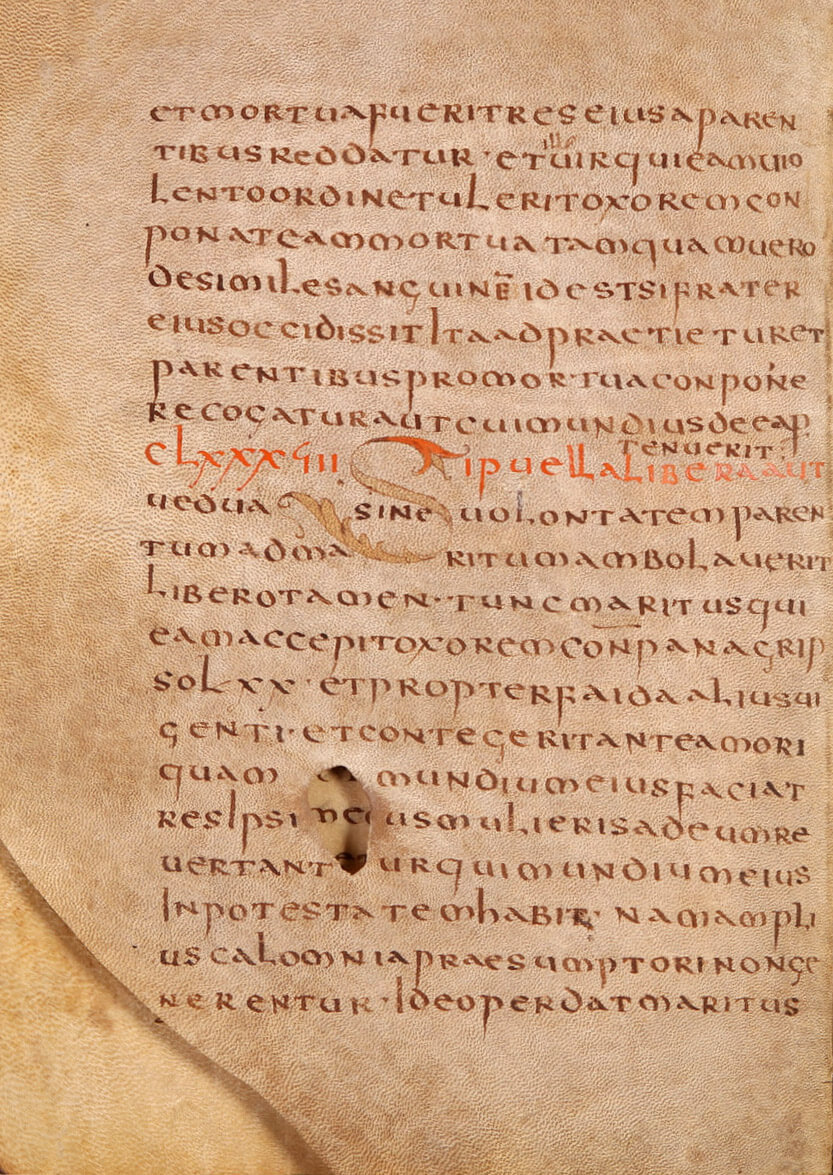 etmortuafueritreseiusaparen
tibusreddatur·etuirquieamuio
ille
lentoordinetuleritoxoremcon
ponateammortuatamquamuero
desimilesanguinē idestsifrater
eiusoccidissitItaadpraetieturet
parentibuspromortuaconpone
recogaturautcuimundiusdeeap
tenuerit·
clxxxuiii Sipuellaliberaaut
uedua sine uolontatemparen
tumadma ritumambolauerit
liberotamen·tuncmaritusqui
eamaccepitoxoremconpanagrip
solxx·etpropterfaidaaliusui
genti·etcontegeritanteamori
quam mundiumeiusfaciat
resipsi usmulierisadeumre
uertantururquimundiumeius
Inpotestatemhabit· namampli
uscalomniapraesumptorinonge
nerentur·Ideoperdatmaritus